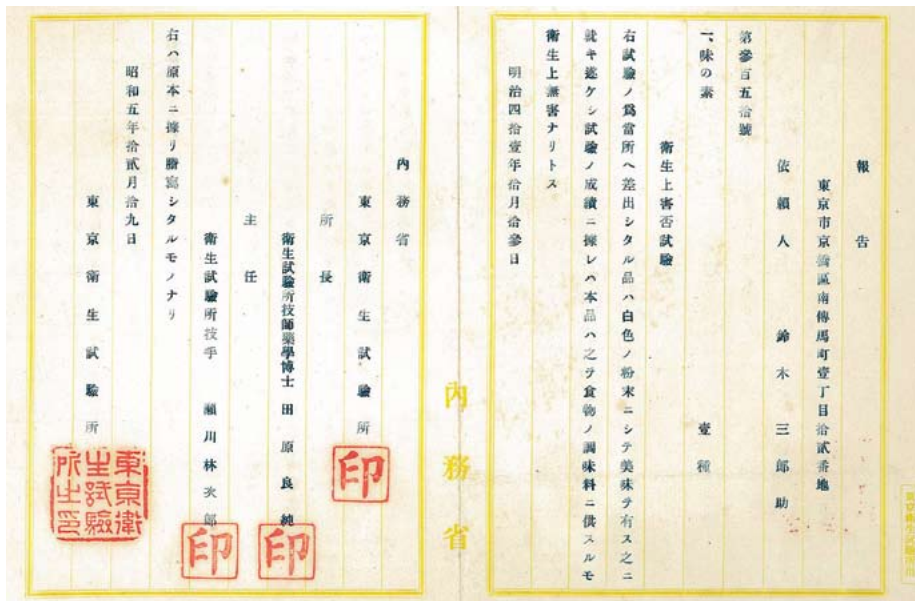 報告
東京市京橋區南傳馬町壹丁目拾貳番地
依賴人 鈴木三郎助
第參百五拾號
一、味の素 壹種
衞生上害否試驗
右試驗ノ爲當所ヘ差出シタル品ハ白色ノ粉末ニシテ美味ヲ有ス之ニ
就キ遂ケシ試驗ノ成績ニ據レハ本品ハ之ヲ食物ノ調味料ニ供スルモ
衞生上無害ナリトス
明治四拾壹年拾月拾參日
內務省
內務省
東京衞生試驗所
印
所長
衞生試驗所技師藥學博士 田原良純
印
主任
衞生試驗所技手 瀨川林次郎
印
右ハ原本ニ據リ謄寫シタルモノナリ
昭和五年拾貳月拾九日
東京衞生試驗所
東京衞
生試驗
所之印